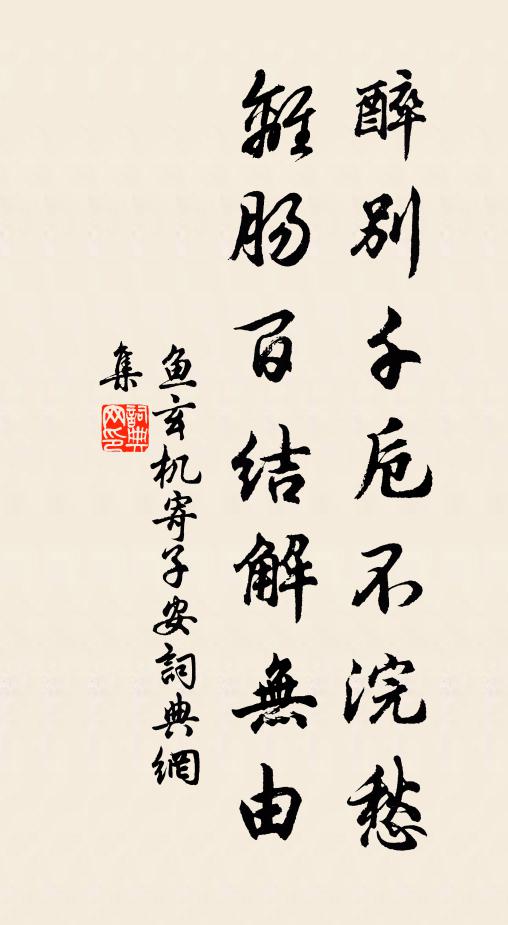 醉别千卮不浣愁
離肠百结解無由
鱼玄机寄子安詞典網
集
詞典
网印